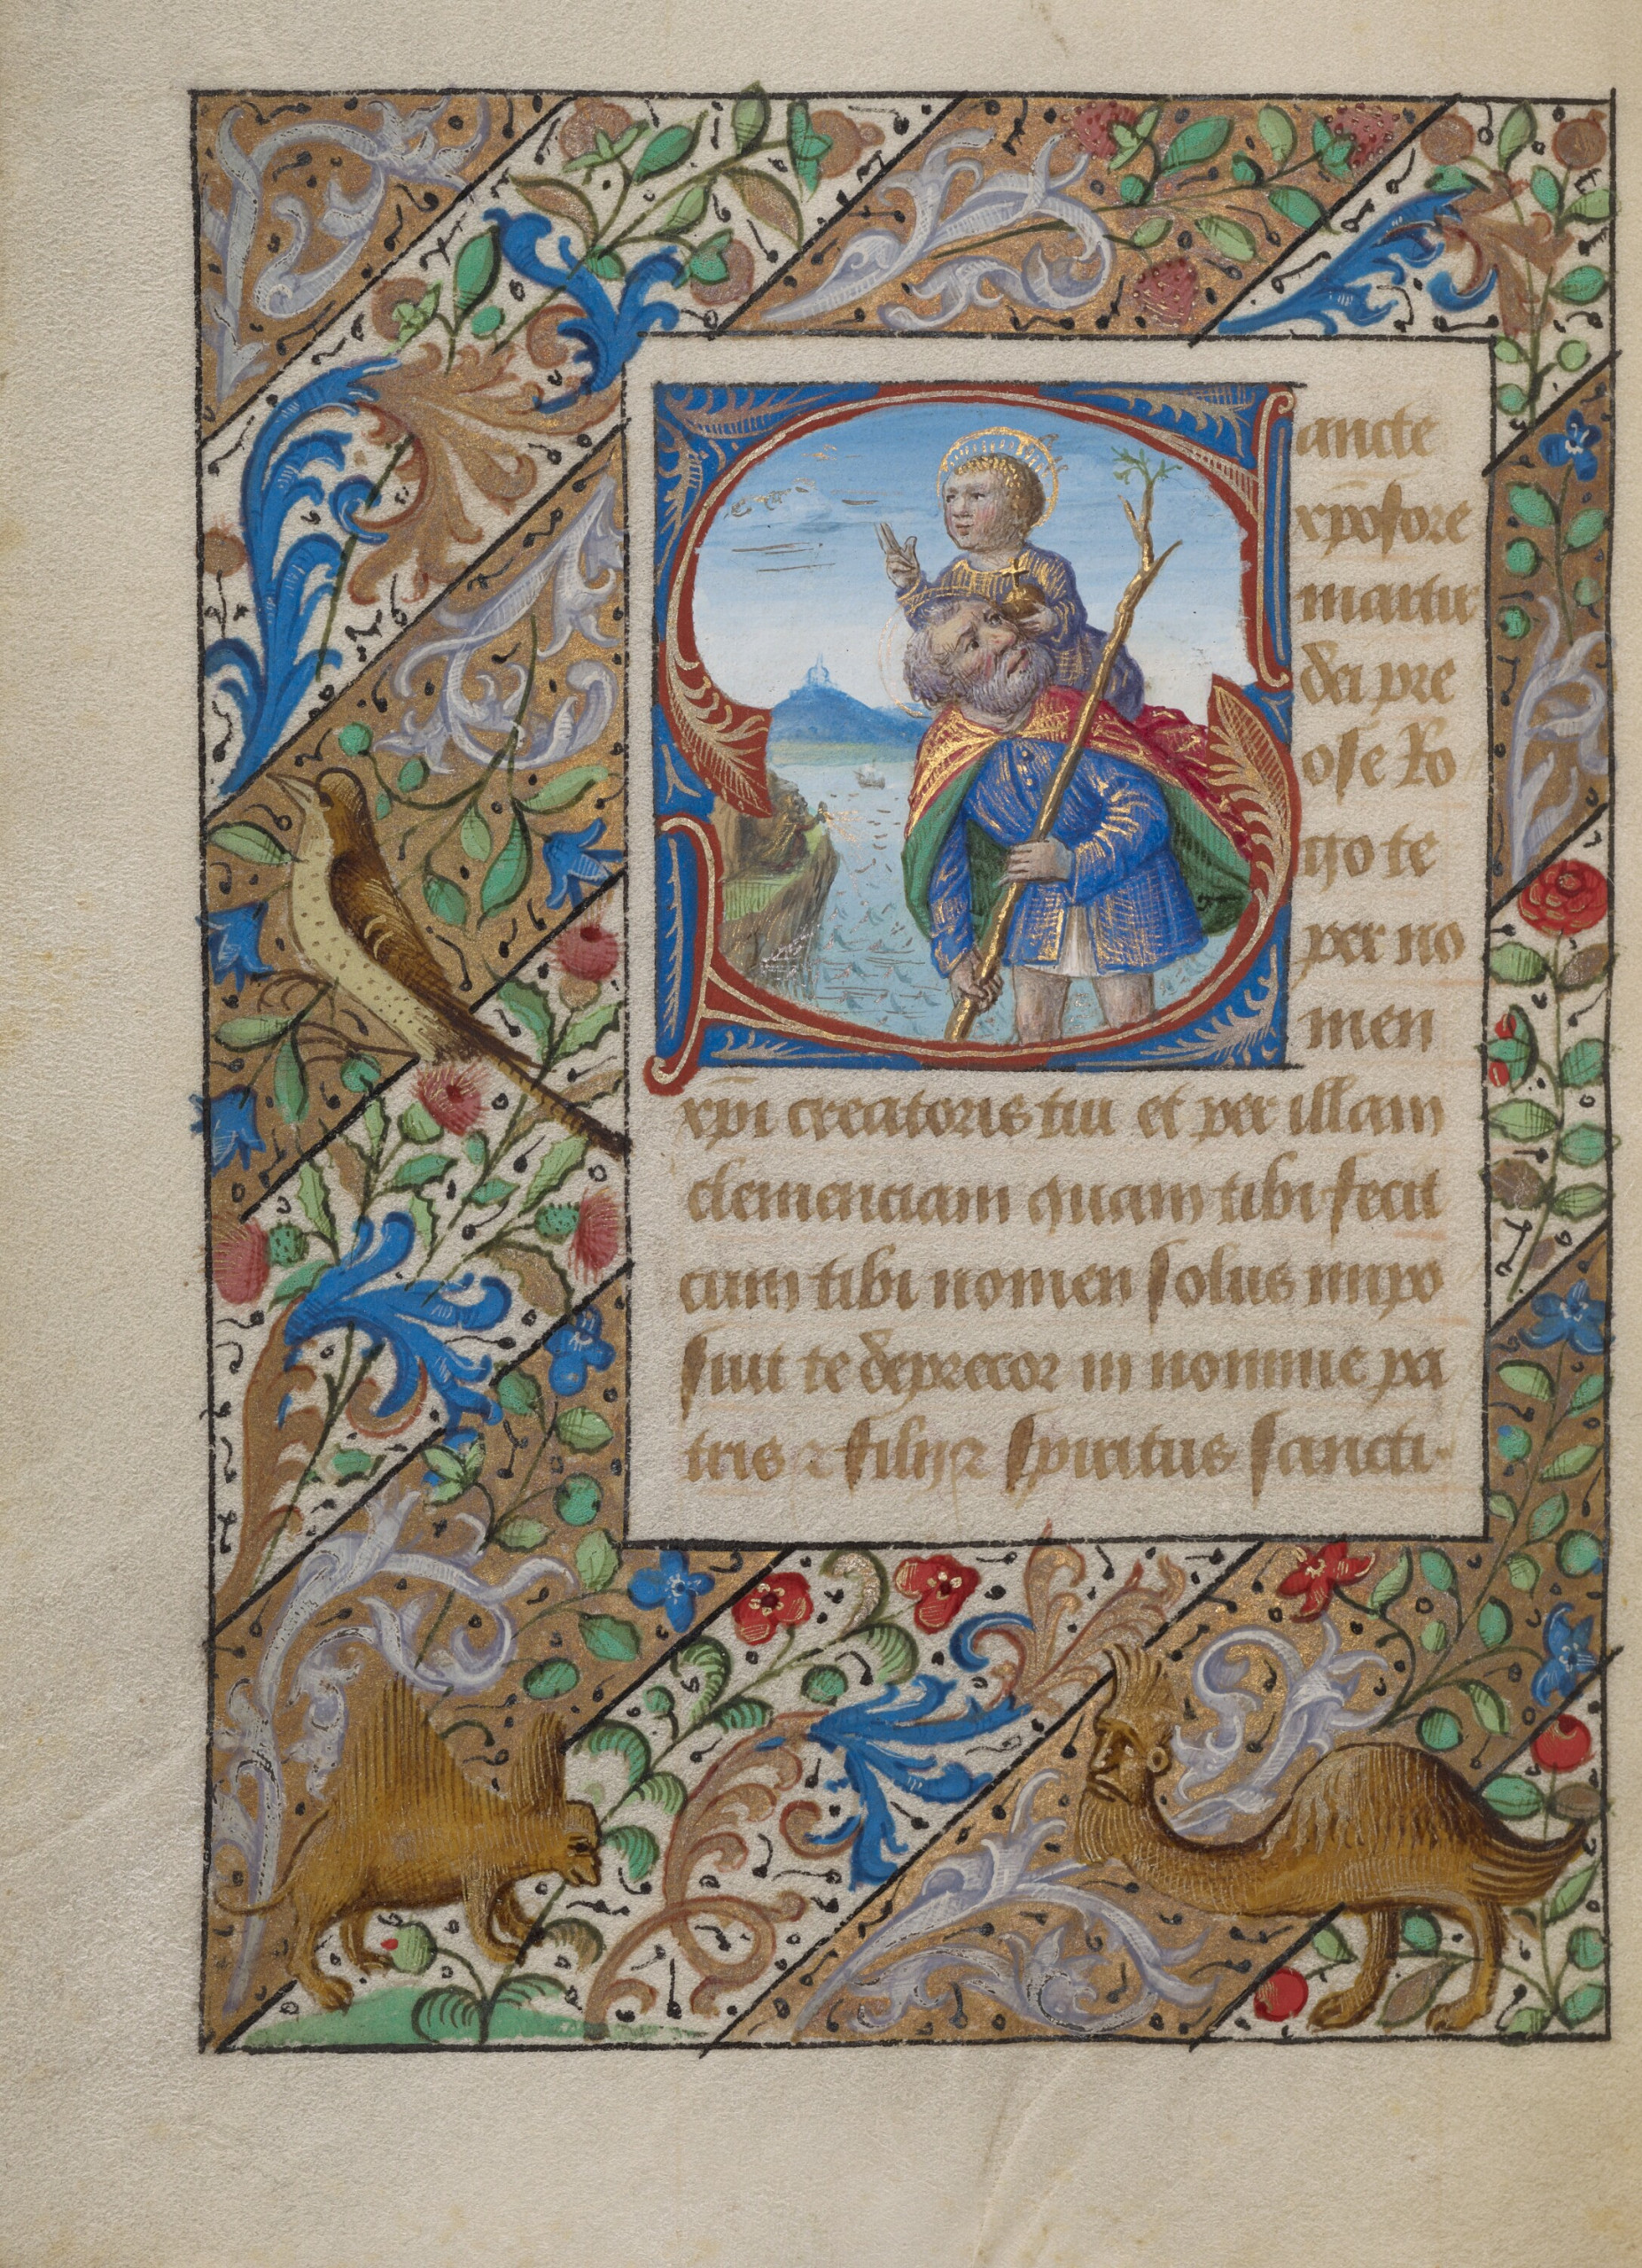 Sancte
xpofore
martir
dei pre
ose Ro
go te
per no
men
xpi creatoris tui et per illam
clemenciam quam tibi fecit
cum tibi nomen solus impo
suit te deprecor in nomine pa
tris et filij et spiritus sancti.